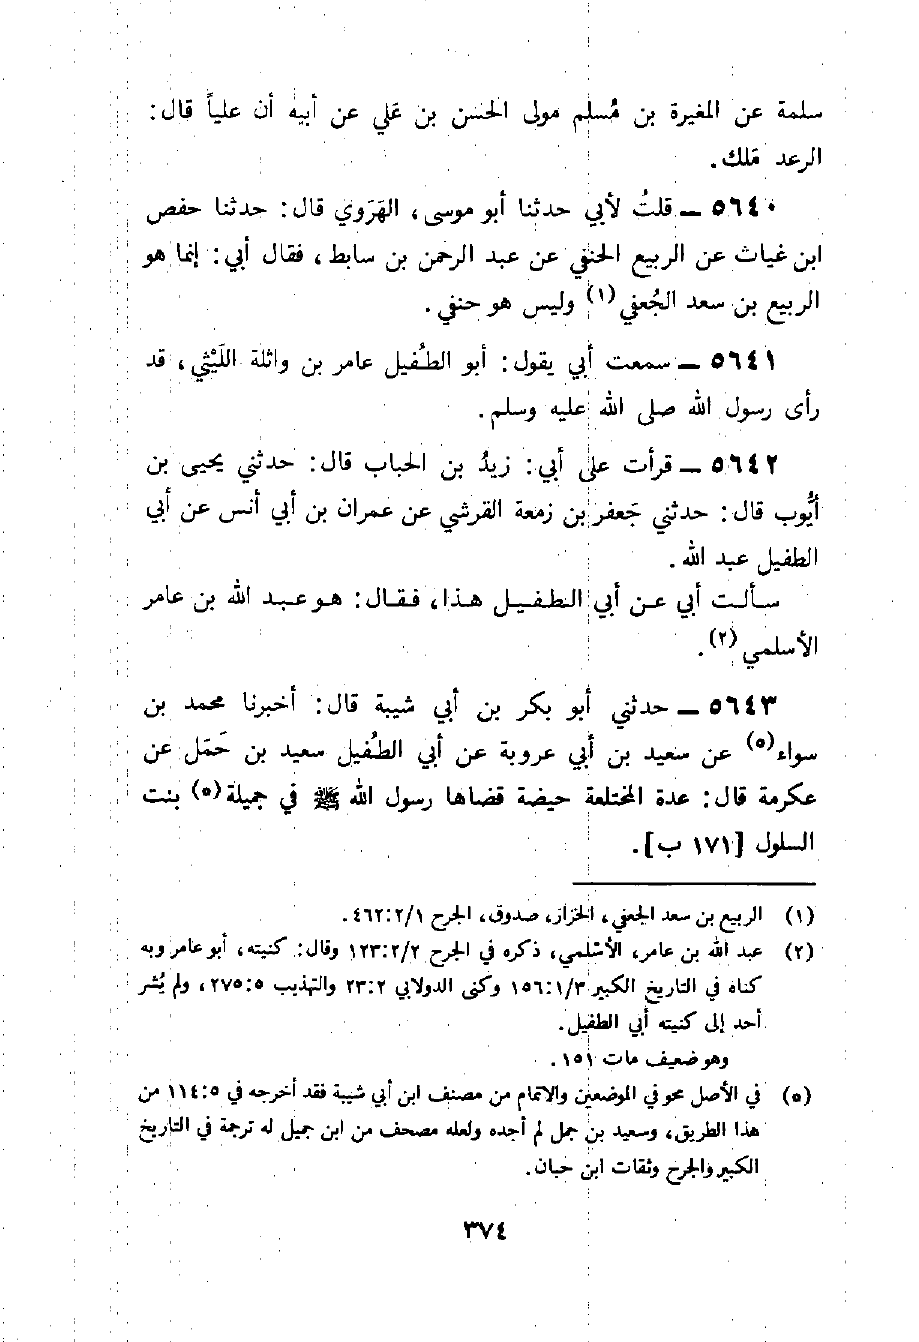 سلمة عن المغيرة بن مُسلم مولى الحسن بن عَلي عن أبيه أن علياً قال:
الرعد مَلك.
٥٦٤٠ ــ قلتُ لأبي حدثنا أبو موسى، الهَرَوي قال: حدثنا حفص
ابن غياث عن الربيع الحنفي عن عبد الرحمن بن سابط، فقال أبي: إنما هو
الربيع بن سعد الجُعفي(١) وليس هو حنفي.
٥٦٤١ ــ سمعت أبي يقول: أبو الطُفيل عامر بن واثلة اللَيْثي، قد
رأى رسول الله صلى الله عليه وسلم.
٥٦٤٢ ــ قرأت على أبي: زيدُ بن الحباب قال: حدثني يحيى بن
أيُّوب قال: حدثني جَعفر بن زمعة القرشي عن عمران بن أبي أنس عن أبي
الطفيل عبد الله.
سألت أبي عن أبي الطفيل هذا، فقال: هو عبد الله بن عامر
الأسلمي(٢).
٥٦٤٣ ــ حدثني أبو بكر بن أبي شيبة قال: أخبرنا محمد بن
سواء(٥) عن سعيد بن أبي عروبة عن أبي الطُفيل سعيد بن حَمَل عن
عكرمة قال: عدة المختلعة حيضة قضاها رسول الله ﷺ في جميلة(٥) بنت
السلول [١٧١ ب].
(١) الربيع بن سعد الجعفي، الخزاز، صدوق، الجرح ٤٦٢:٢/١.
(٢) عبد الله بن عامر، الأسْلمي، ذكره في الجرح ١٢٣:٢/٢ وقال: كنيته، أبو عامر وبه
كناه في التاريخ الكبير ١٥٦:١/٣ وكنى الدولابي ٢٣:٢ والتهذيب ٢٧٥:٥، ولم يُشر
أحد إلى كنيته أبي الطفيل.
وهو ضعيف مات ١٥١.
(٥) في الأصل محو في الموضعين والاتمام من مصنف ابن أبي شيبة فقد أخرجه في ١١٤:٥ من
هذا الطريق، وسعيد بن حمل لم أجده ولعله مصحف من ابن جميل له ترجمة في التاريخ
الكبير والجرح وثقات ابن حبان.
٣٧٤